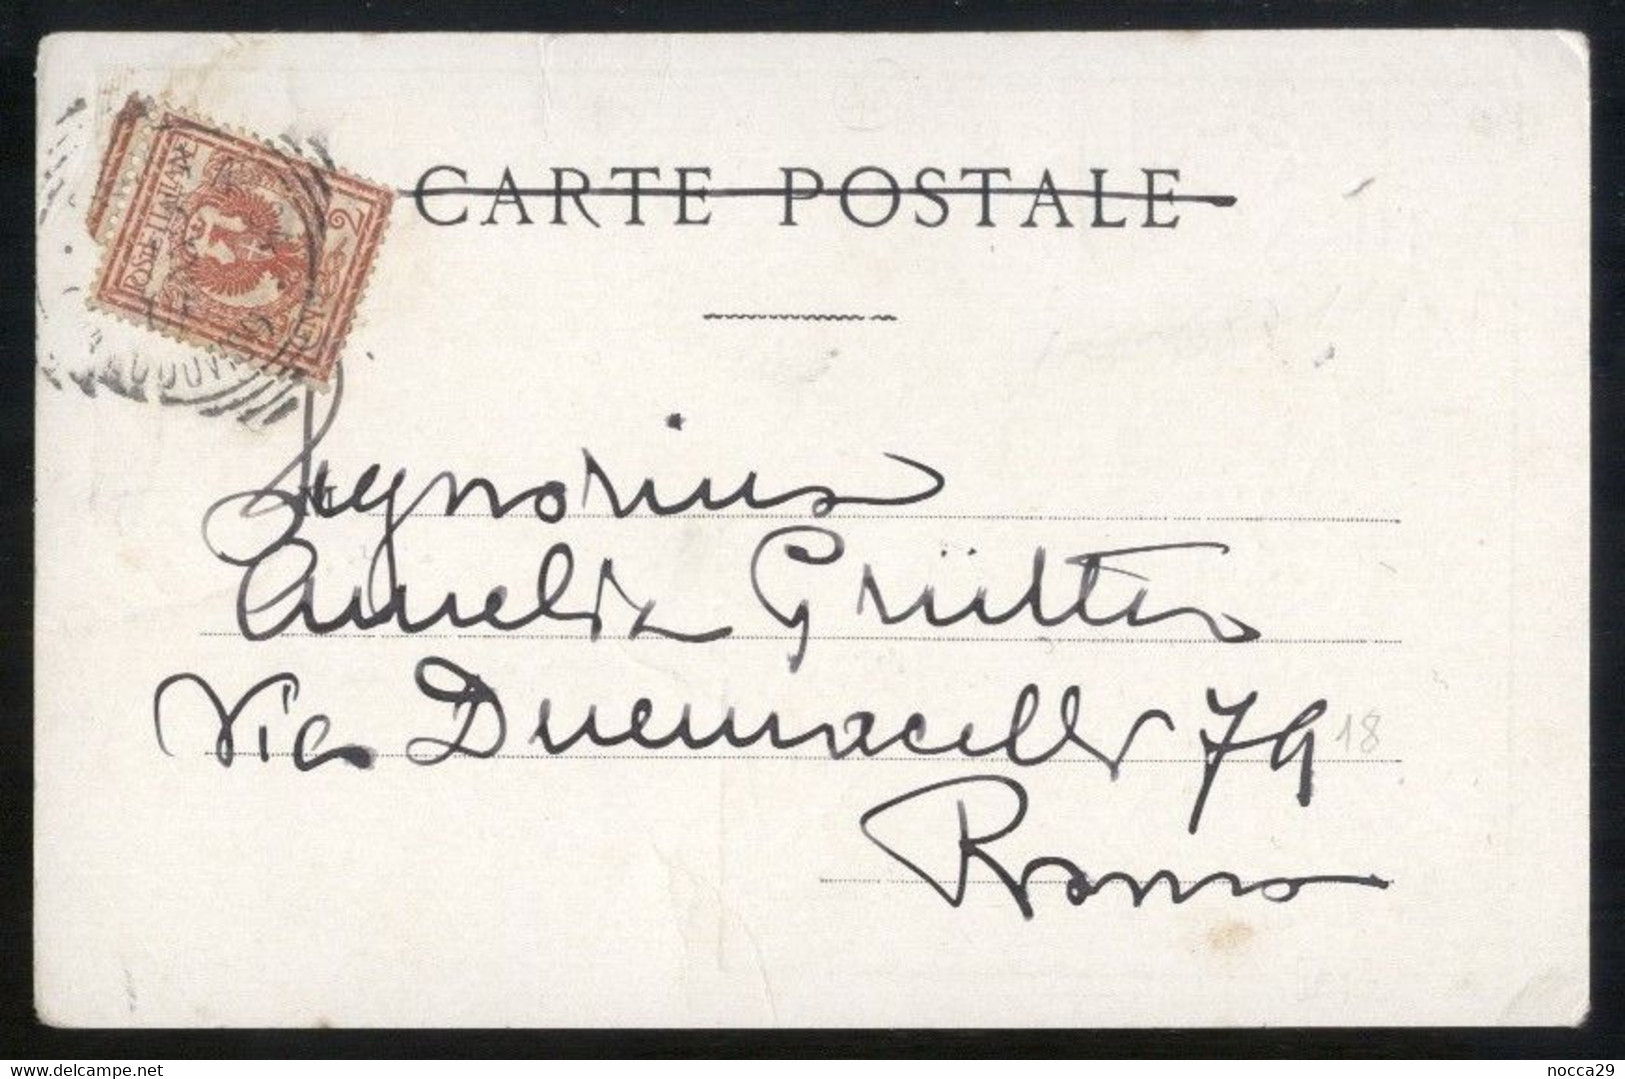 CARTE POSTALE
POSTE ITALIANE
2
Signorina
Amelia Grütter
Via Duemacelli 79
18
Roma
delcampe.net
nocca29